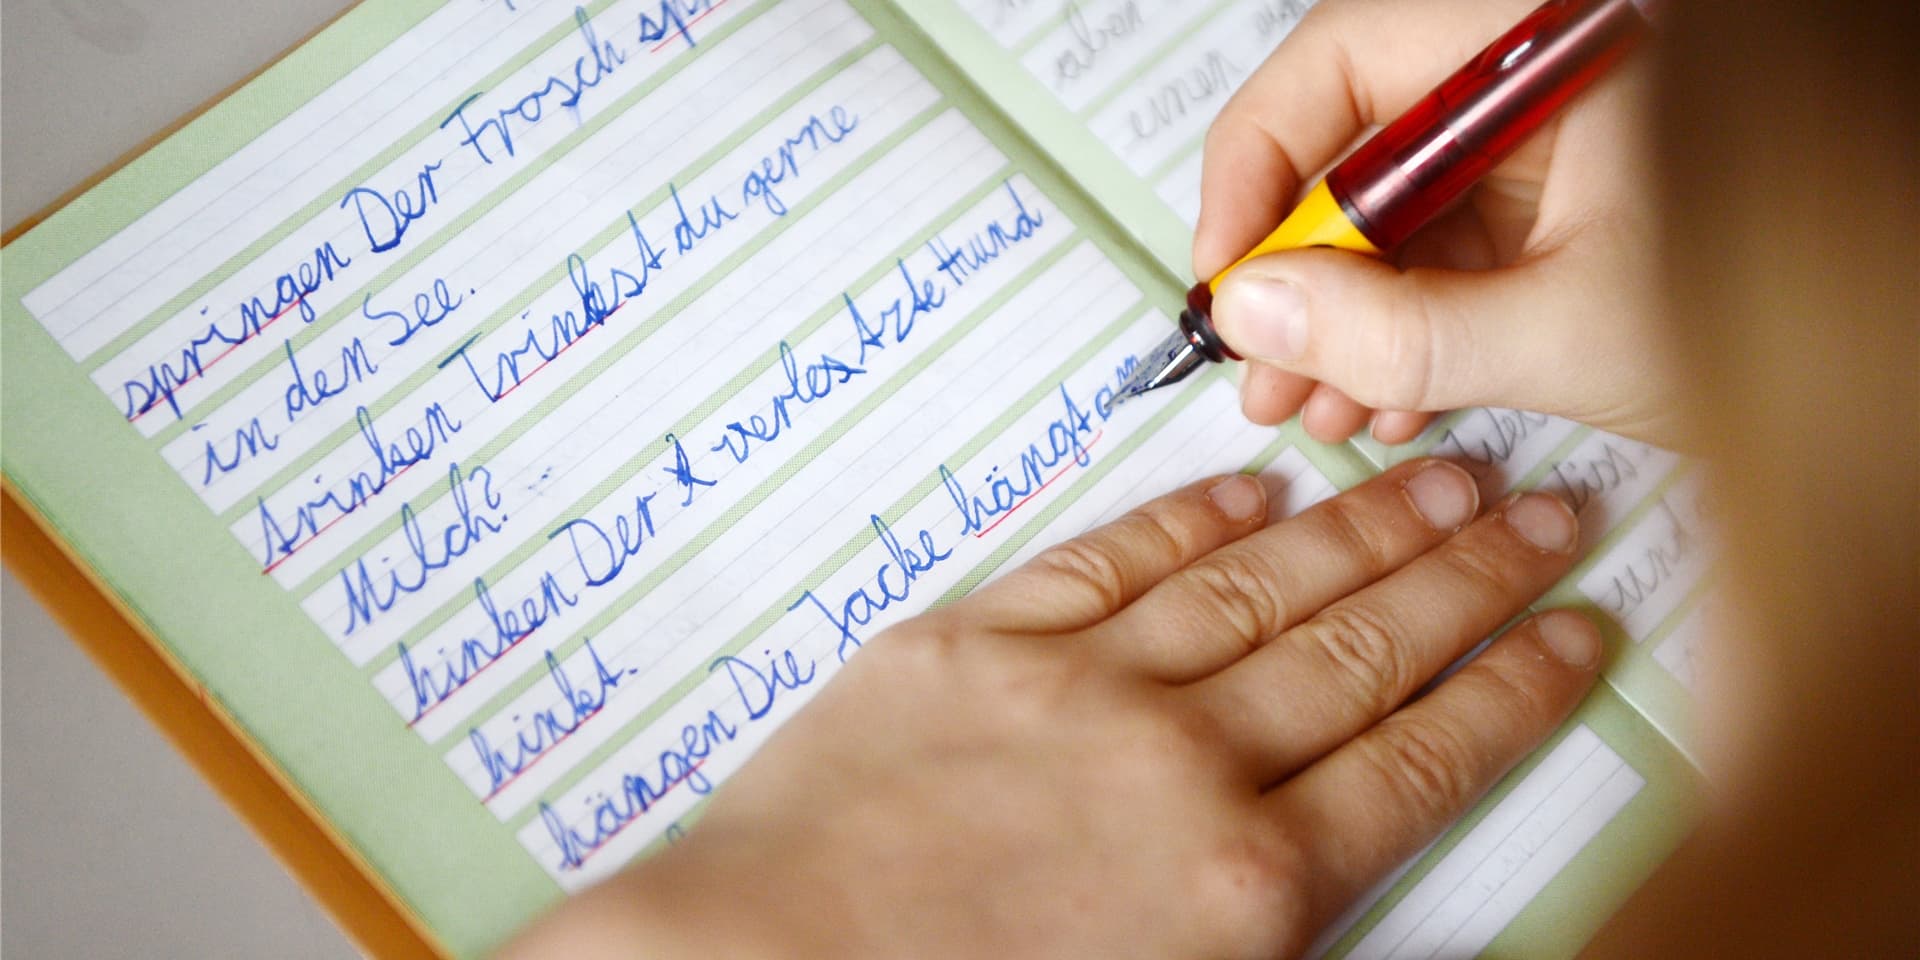 springen Der Frosch
in den See.
trinken Trinkst du gerne
Milch?
hinken Der verlestzte Hund
hinkt.
hängen Die Jacke hängt am
und